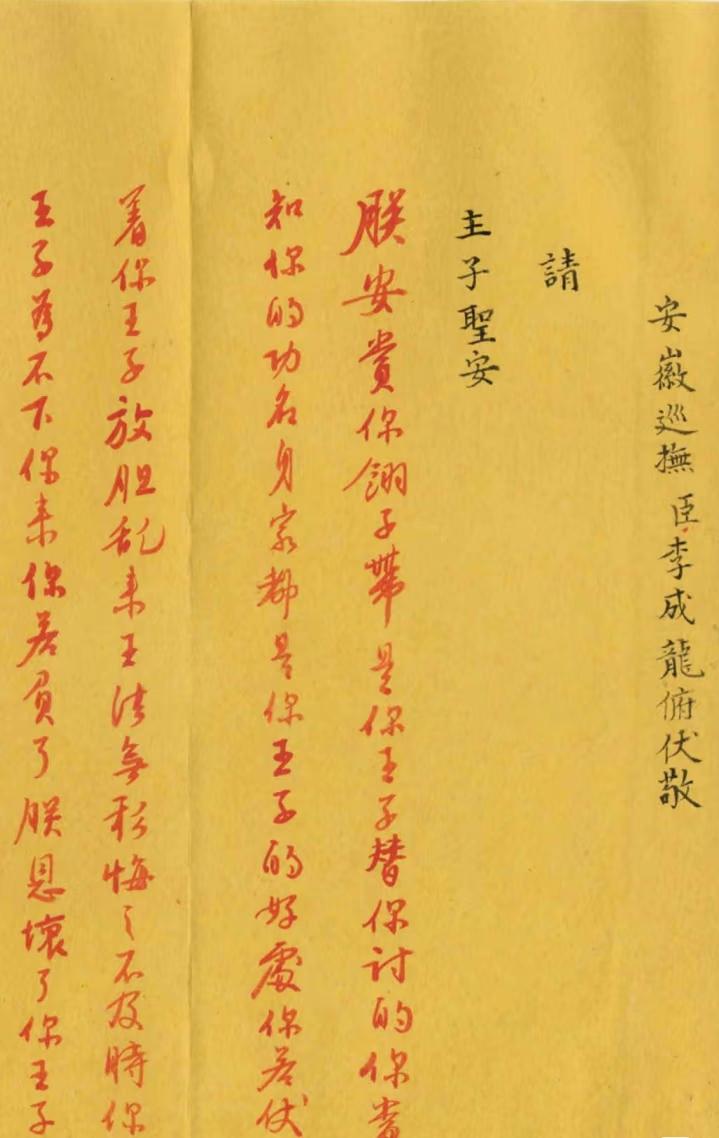 安徽巡撫臣李成龍俯伏敬
請
主子聖安
朕安賞你翎子帶是你王子替你討的你當
知你的功名身家都是你王子的好處你若伏
着你王子放胆乱来王法無私悔之不及時你
王子為不下你来你若負了朕恩壞了你王子